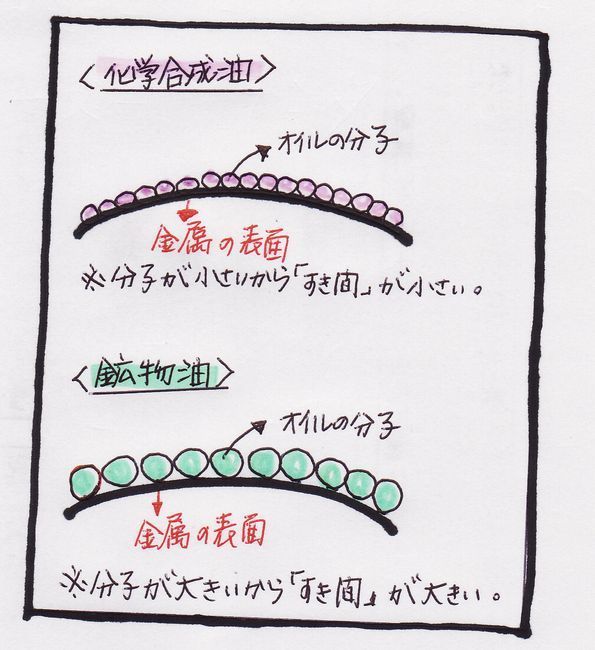 〈化学合成油〉
オイルの分子
金属の表面
※分子が小さいから「すき間」が小さい。
〈鉱物油〉
オイルの分子
金属の表面
※分子が大きいから「すき間」が大きい。